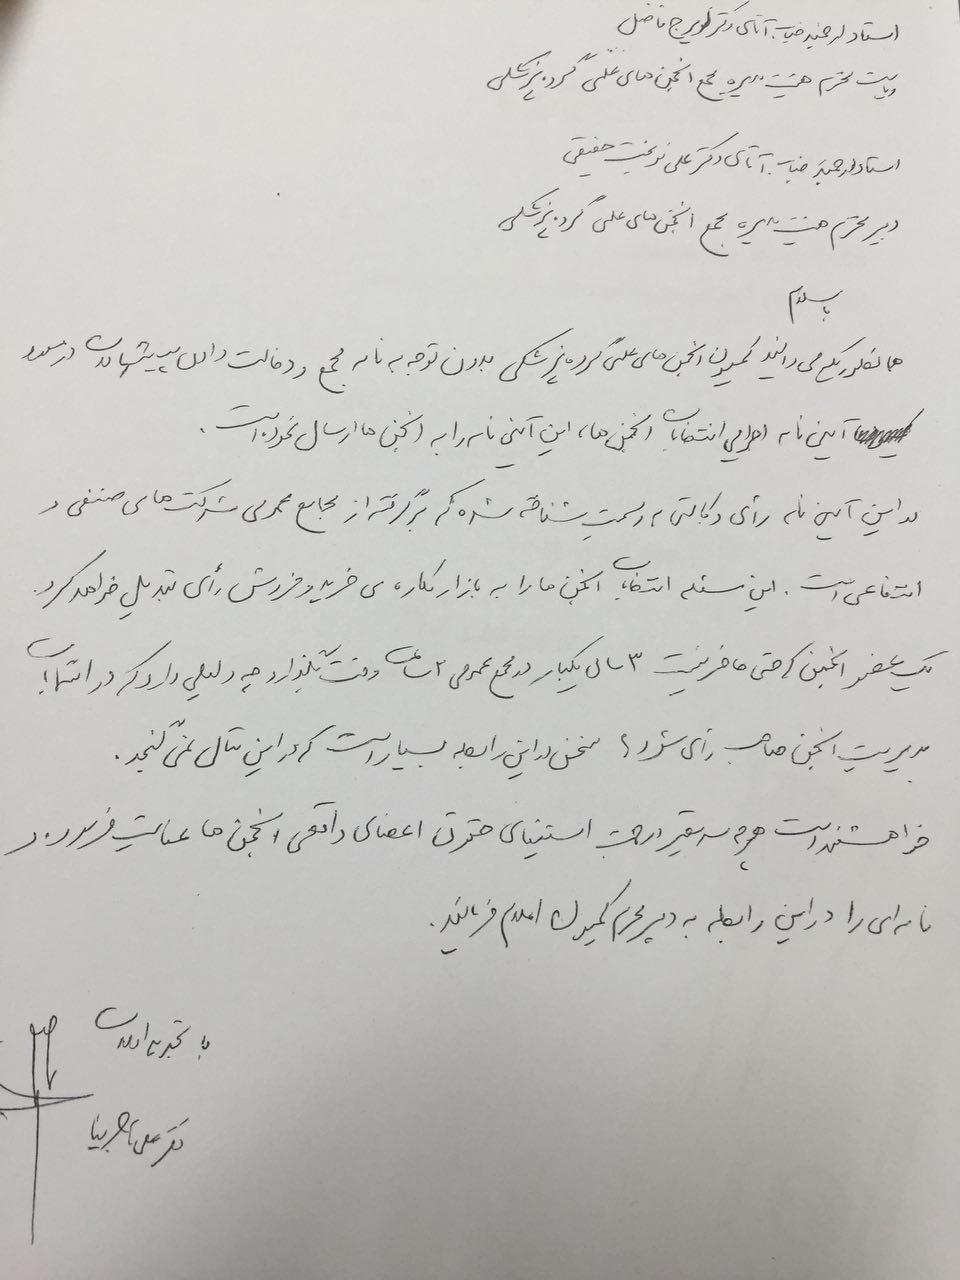 استاد ارجمند جناب آقای دکتر ایرج فاضل
ریاست محترم هیئت مدیره مجمع انجمن های علمی گروه پزشکی
استاد ارجمند جناب آقای دکتر علی نوبخت حقیقی
دبیر محترم هیئت مدیره مجمع انجمن های علمی گروه پزشکی
با سلام
همانطوریکه می دانید کمیسیون انجمن های علمی گروه پزشکی بدون توجه به نامه مجمع و دخالت دادن پیشنهادات در مورد
آیین نامه اجرایی انتخابات انجمن ها، این آئین نامه را به انجمن ها ارسال نموده است.
در این آئین نامه رأی وکالتی به رسمیت شناخته شده که برگرفته از مجامع عمومی شرکت های صنفی و
انتفاعی است. این مسئله انتخابات انجمن ها را به بازار مکاره ی خرید و فروش رأی تبدیل خواهد کرد.
یک عضو انجمن که حتی حاضر نیست ۳ سال یکبار در مجمع عمومی ۲ ساعت وقت بگذارد چه دلیلی دارد که در انتخابات
مدیریت انجمن صاحب رأی شود؟ سخن در این رابطه بسیار است که در این مقال نمی گنجد.
خواهشمند است هرچه سریعتر جهت استیفای حقوق اعضای واقعی انجمن ها عنایت فرموده و
نامه ای را در این رابطه به دبیر محترم کمیسیون اعلام فرمائید.
با تجدید ارادت
دکتر علی